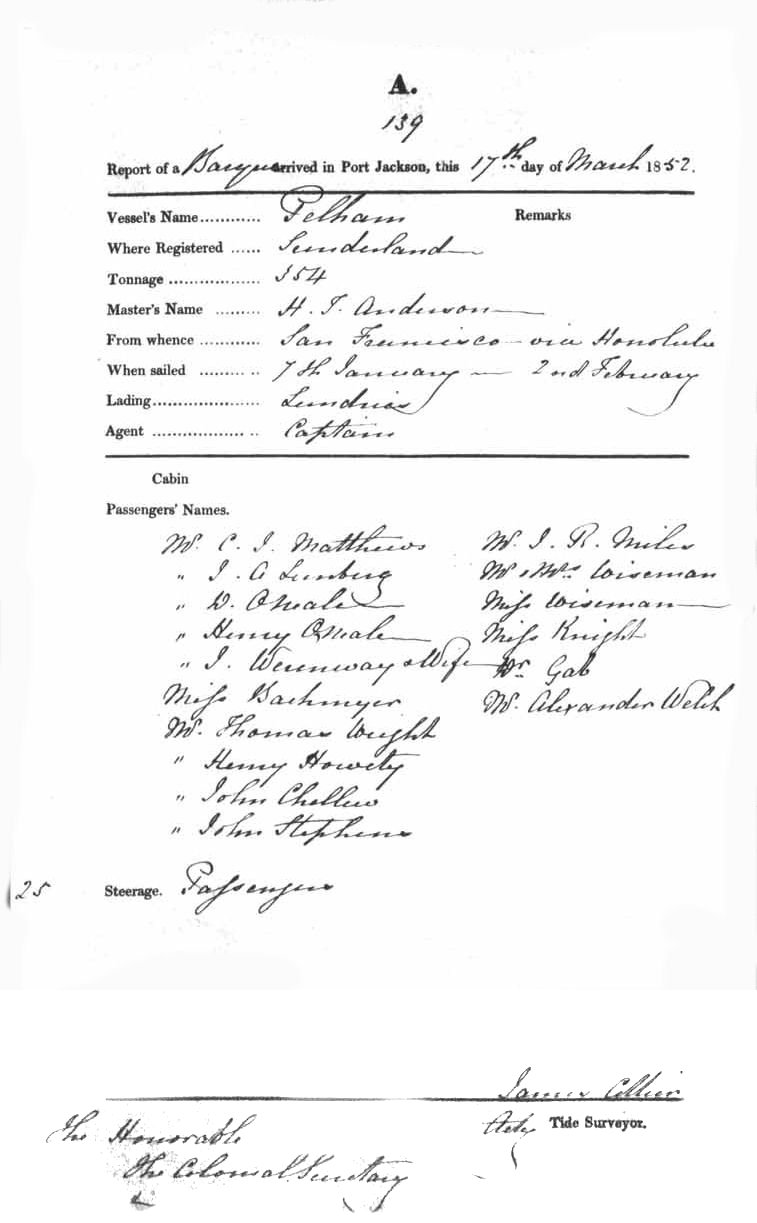 A.
139
Report of a Barque arrived in Port Jackson, this 17th day of March 1852.
Vessel's Name............ Pelham Remarks
Where Registered ...... Sunderland
Tonnage .................. 354
Master's Name ......... H. T. Anderson
From whence ............ San Francisco - via Honolulu
When sailed ......... .. 7th January — 2nd February
Lading..................... Sundries
Agent .................. .. Captain
Cabin
Passengers' Names.
Mr. C. J. Matthews Mr. J. R. Miles
" J. A Mr & Mrs Wiseman
" D. ONeale Miss Wiseman
" Henry ONeale Miss Knight
" J. & Wife Dr. Gab
Miss Bachmyer Mr. Alexander Welch
Mr. Thomas Wright
" Henry
" John Chellew
" John Stephens
25 Steerage. Passengers
James Collier
Actg Tide Surveyor.
The Honorable
The Colonial Secretary